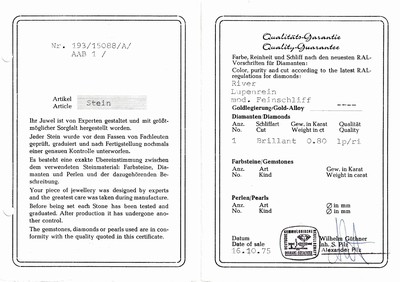 Nr. 193/15088/A/
AAB 1 /
Artikel
Article
Stein
Ihr Juwel ist von Experten gestaltet und mit größt-
möglicher Sorgfalt hergestellt worden.
Jeder Stein wurde vor dem Fassen von Fachleuten
geprüft, graduiert und nach Fertigstellung nochmals
einer genauen Kontrolle unterworfen.
Es besteht eine exakte Übereinstimmung zwischen
dem verwendeten Steinmaterial: Farbsteine, Dia-
manten und Perlen und der dazugehörenden Be-
schreibung.
Your piece of jewellery was designed by experts
and the greatest care was taken during manufacture.
Before being set each Stone has been tested and
graduated. After production it has undergone ano-
ther control.
The gemstones, diamonds or pearls used are in con-
formity with the quality quoted in this certificate.
Qualitäts-Garantie
Quality-Guarantee
Farbe, Reinheit und Schliff nach den neuesten RAL-
Vorschriften für Diamanten:
Color, purity and cut according to the latest RAL-
regulations for diamonds:
River
Lupenrein
mod. Feinschliff
Goldlegierung/Gold-Alloy ----
Diamanten/Diamonds
Anz. Schliffart Gew. in Karat Qualität
No. Cut Weight in ct Quality
1 Brillant 0.80 lp/ri
Farbsteine/Gemstones
Anz. Art Gew. in Karat
No. Kind Weight in carat
Perlen/Pearls
Anz. Art Ø in mm
No. Kind Ø in mm
Datum
Date of sale
16.10.75
Wilhelm Güthner
Inh. S. Pilz
Alexander Pilz